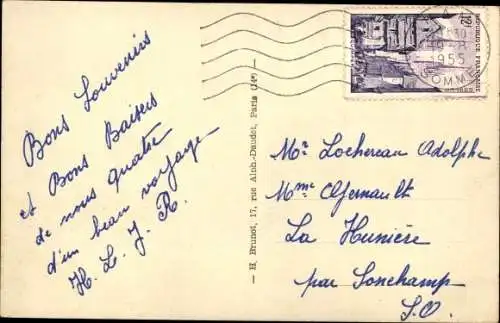 Bons Souvenirs
et Bons Baisers
de nous quatre
d'un beau voyage
H. L. J. R.
— H. Brunoi, 17, rue Alph.-Daudet, Paris (14e) —
12f
REPUBLIQUE FRANÇAISE
1955
SOMME
Mr Lochereau Adolphe
Mme Ofernault
La Hunière
par Sonchamp
S.O.